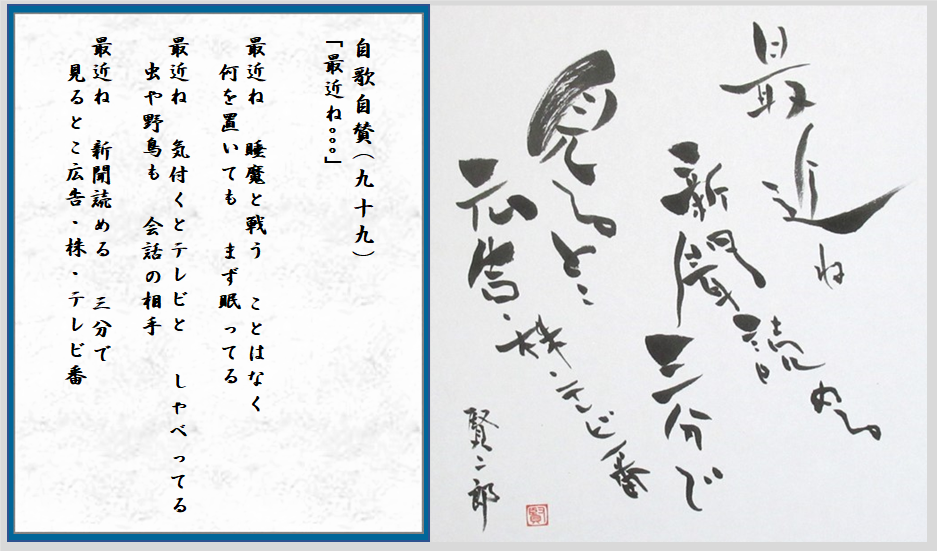 自歌自賛(九十九)
「最近ね。。。」
最近ね 睡魔と戦う ことはなく
何を置いても まず眠ってる
最近ね 気付くとテレビと しゃべってる
虫や野鳥も 会話の相手
最近ね 新聞読める 三分で
見るとこ広告・株・テレビ番
最近ね
新聞読める
三分で
見るとこ
広告・株・テレビ番
賢二郎
賢